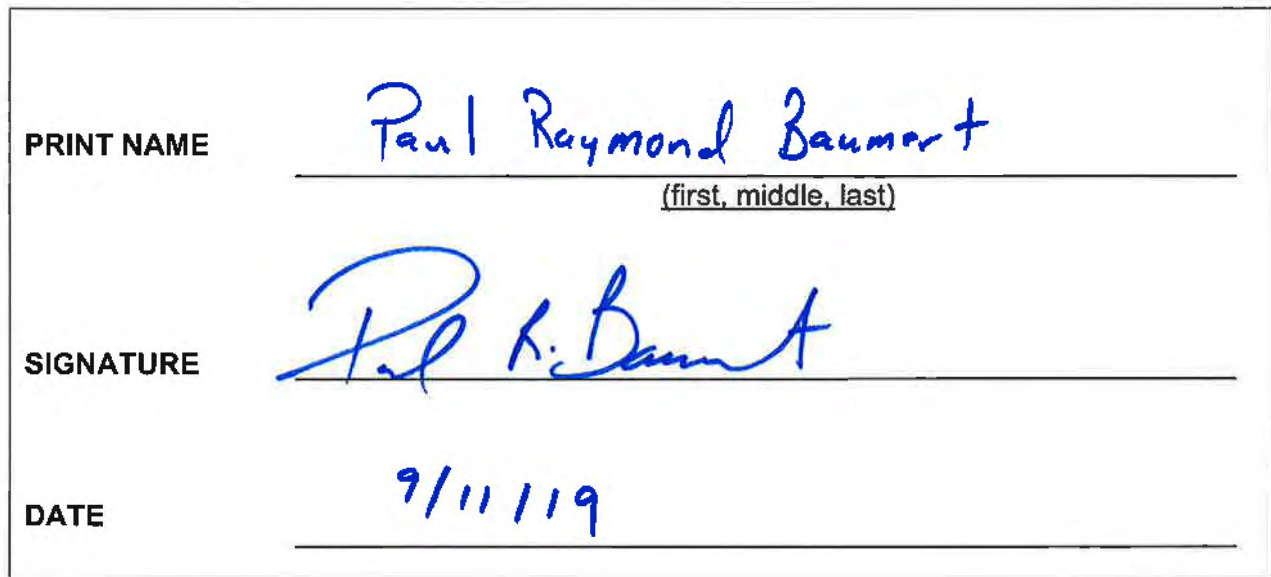 PRINT NAME Paul Raymond Baumert
(first, middle, last)
SIGNATURE Paul R. Baumert
DATE 9/11/19